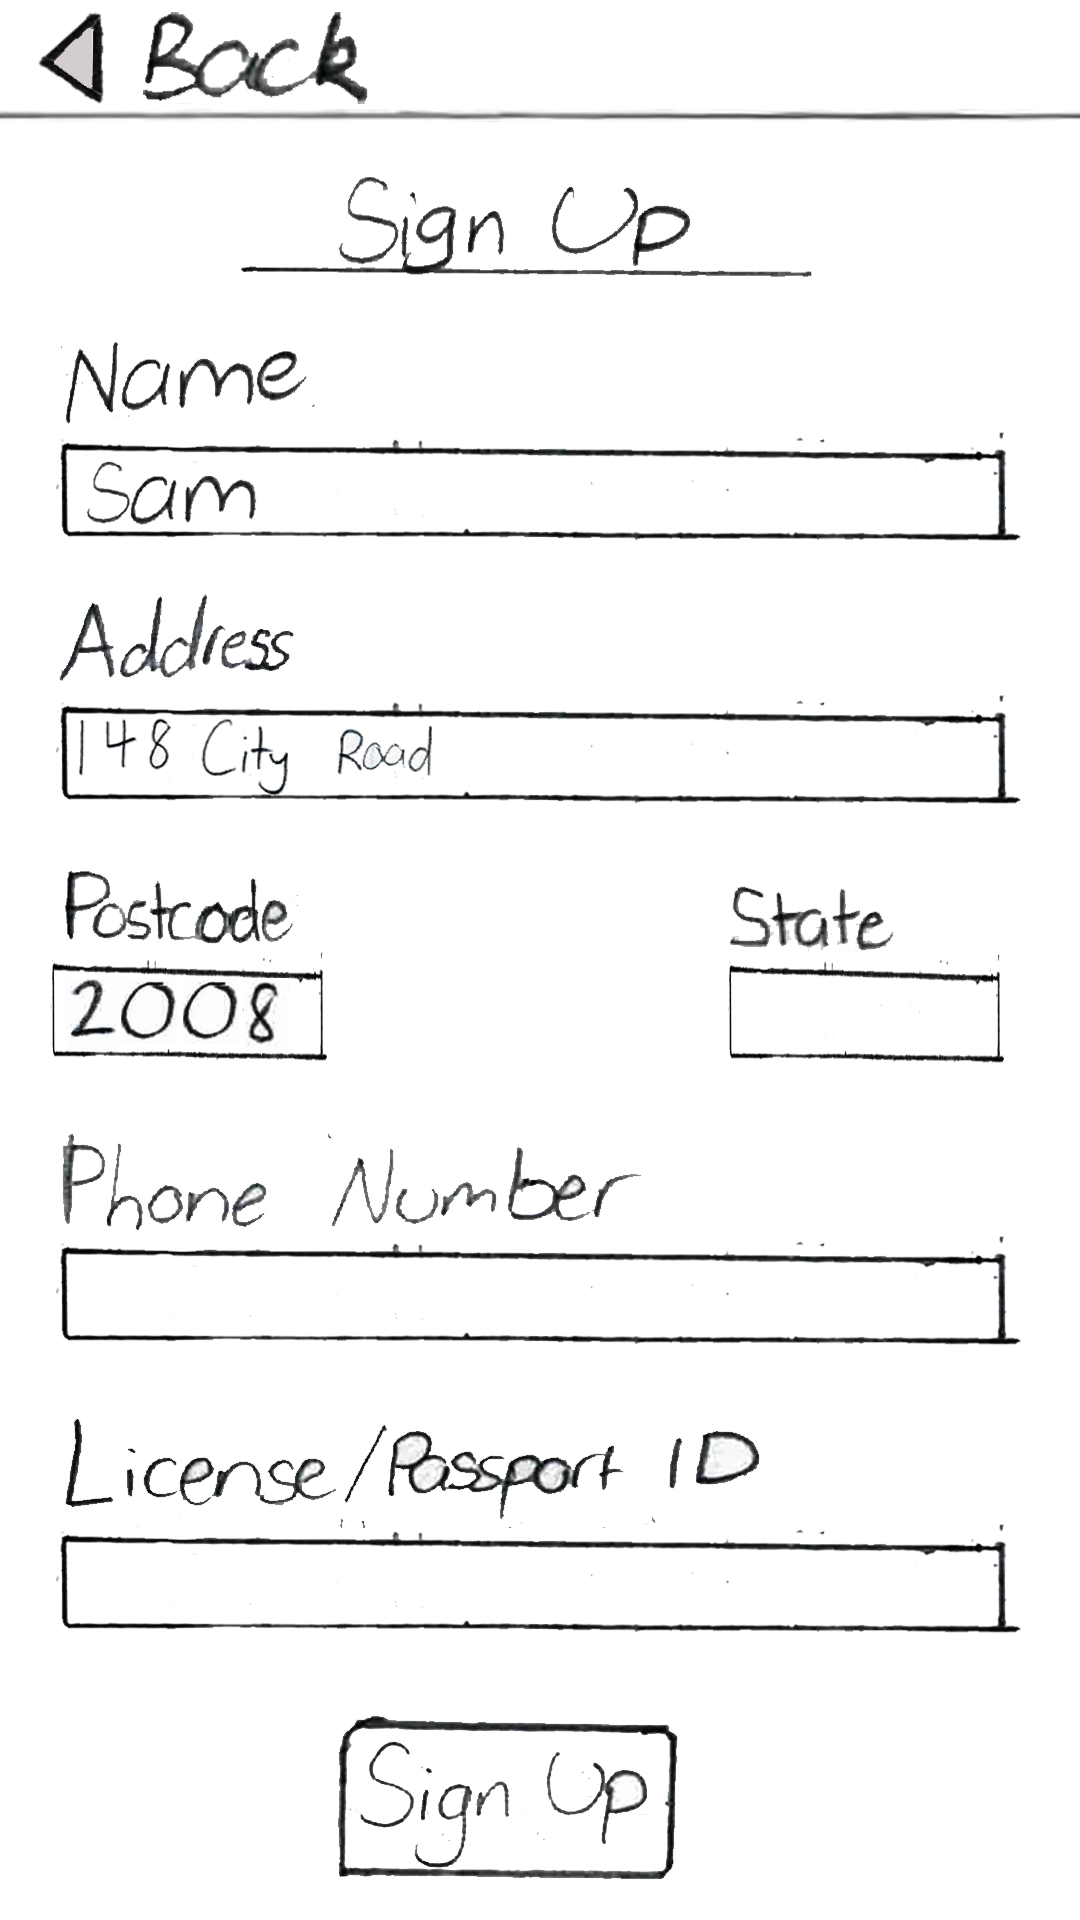 Back
Sign Up
Name
Sam
Address
148 City Road
Postcode State
2008
Phone Number
License/Passport ID
Sign Up